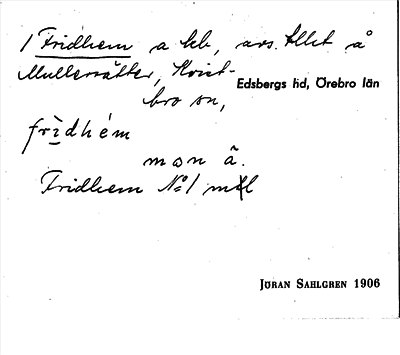 1 Fridhem a lb, avs. tllet å
Mullersätter, Kvist-
Edsbergs hd, Örebro län
bro sn,
frìdhém
man ä.
Fridhem No 1 mtl
JÖRAN SAHLGREN 1906